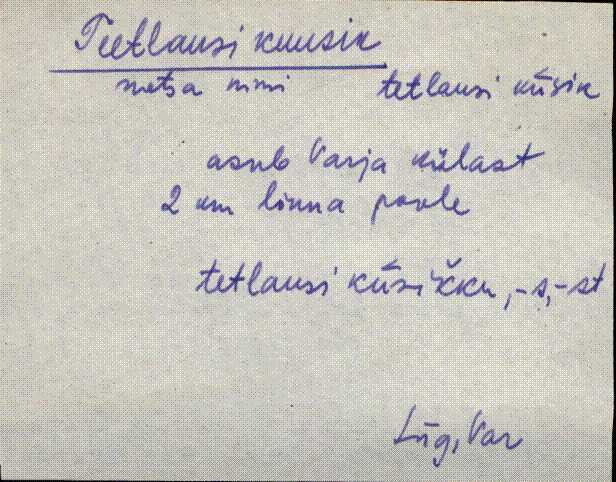 Teetlausi kuusik
metsa nimi tetlausi kūsik
asub Varja külast
2 km linna poole
tetlausi kūsikku, -s, -st
Lüg, Var